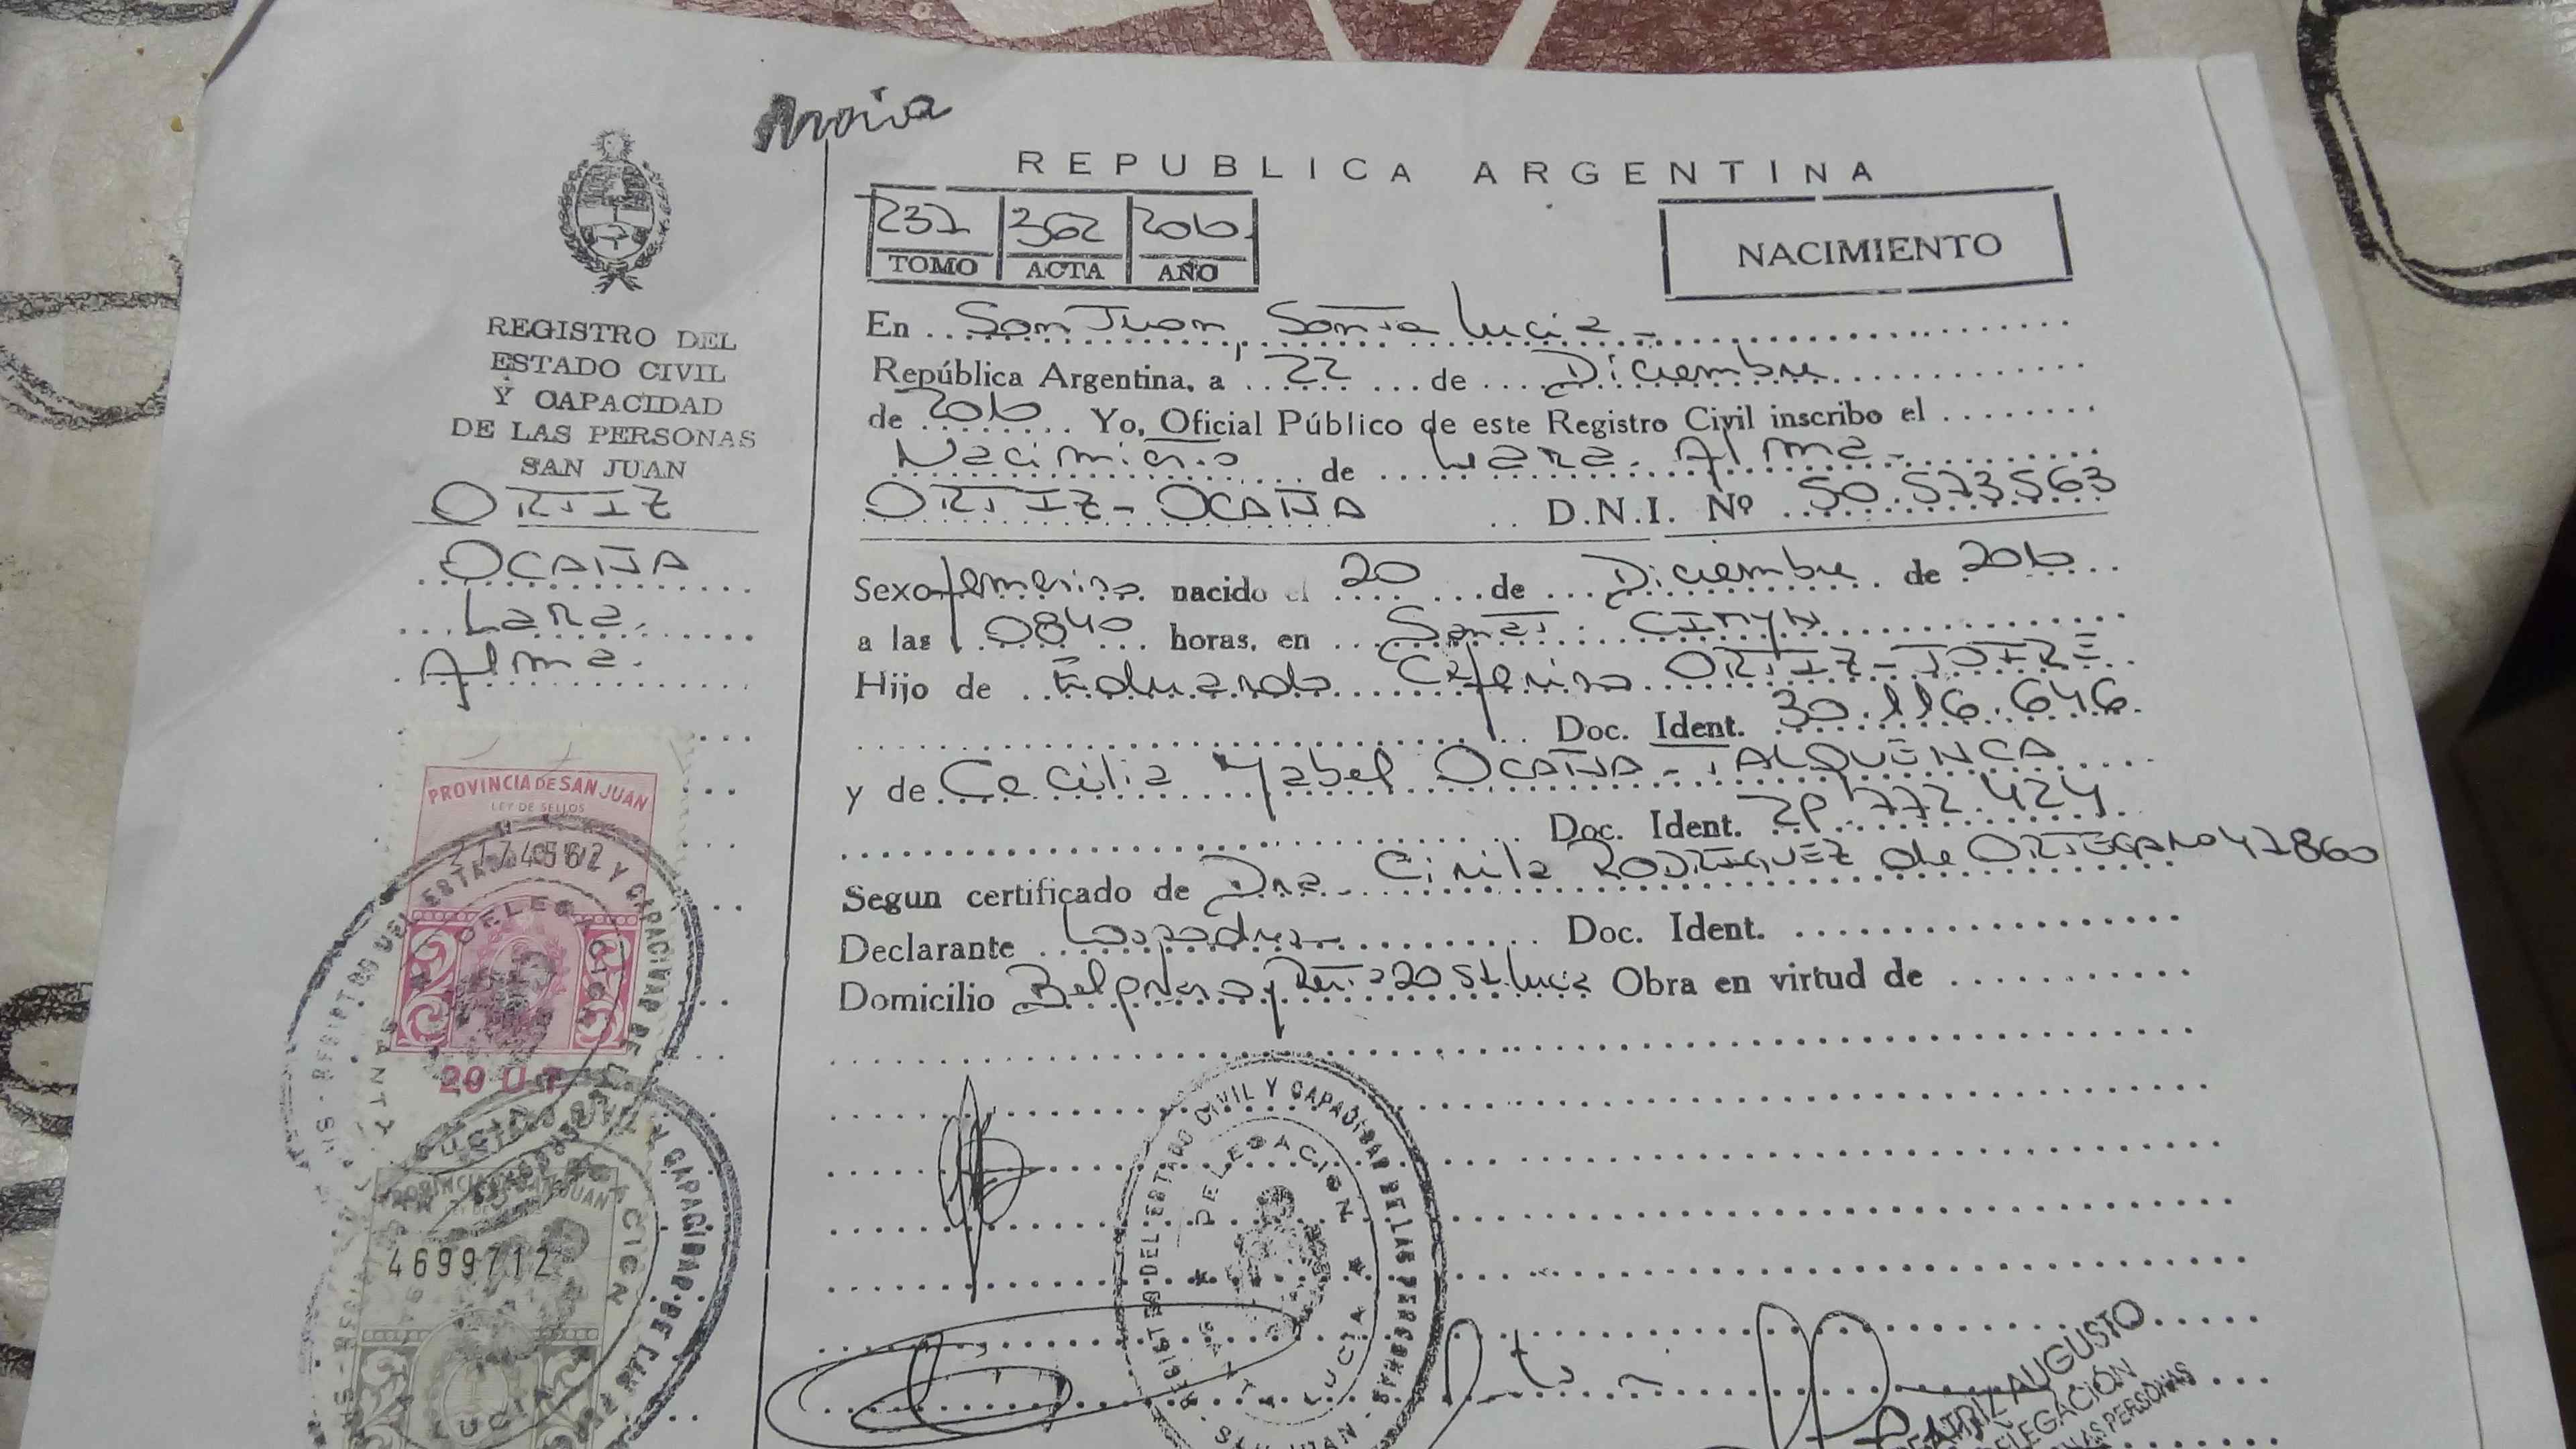 REPUBLICA ARGENTINA
231 362 2010
TOMO ACTA AÑO
NACIMIENTO
REGISTRO DEL
ESTADO CIVIL
Y CAPACIDAD
DE LAS PERSONAS
SAN JUAN
ORTIZ
OCAÑA
Lara
Alma.
En San Juan, Santa Lucia -
República Argentina, a 22 de Diciembre
de 2010 Yo, Oficial Público de este Registro Civil inscribo el
Nacimiento de Lara Alma -
ORTIZ - OCAÑA D.N.I. Nº 50.573563
Sexo femenino nacido el 20 de Diciembre de 2010
a las 0840 horas, en Sanat. CIMYN
Hijo de Eduardo Ceferino ORTIZ - JOFRÉ
Doc. Ident. 30.116.646
y de Cecilia Yabel OCAÑA - TALQUENCA
Doc. Ident. 29.772.424
Segun certificado de Dra. Cirila RODRIGUEZ de ORTEGA Nº 41860
Declarante Los padres Doc. Ident.
Domicilio Belgrano y 20 St. Lucia Obra en virtud de
PROVINCIA DE SAN JUAN
LEY DE SELLOS
20 U.T.
PROVINCIA DE SAN JUAN
4699712
REGISTRO DEL ESTADO CIVIL Y CAPACIDAD DE LAS PERSONAS
DELEGACION
SANTA LUCIA
SAN JUAN
BEATRIZ AUGUSTO
DELEGACIÓN
LAS PERSONAS